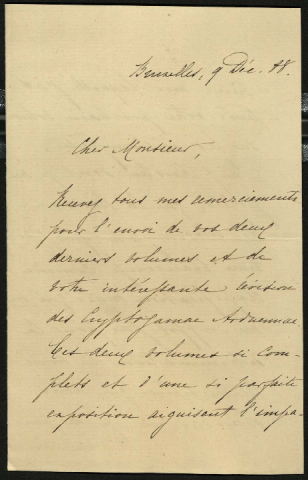 Bruxelles, 9 Déc. 88.
Cher Monsieur,
Recevez tous mes remerciements
pour l'envoi de vos deux
derniers volumes et de
votre intéressante révision
des Cryptogamae Arduennae
Ces deux volumes si com-
plets et d'une si parfaite
exposition aiguisent l'impa-